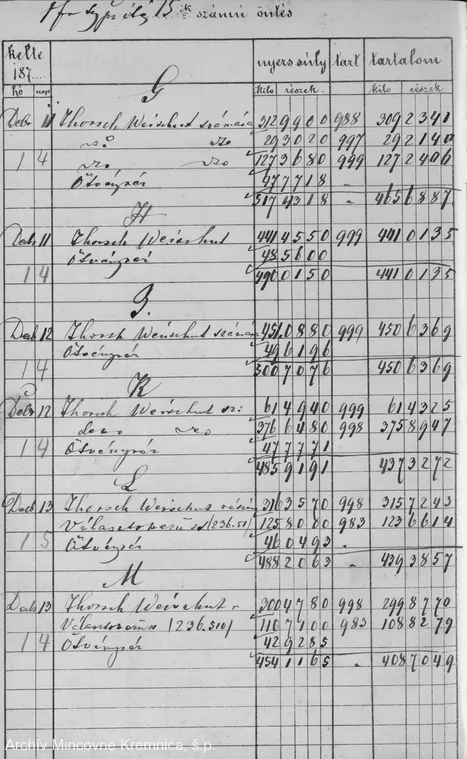 15 ik számú öntés
kelte nyers súly tart tartalom
187....
hó nap kilo részek kilo részek
G
Deb 11 Thorsch Weisshut számára 312 9900 988 309 2341
29 3020 997 29 2140
14 127 3680 999 127 2406
Ötvényréz 47 7718 -
517 4318 - 465 6887
H
Deb 11 Thorsch Weisshut 441 4550 999 441 0135
Ötvényréz 48 5600
14 490 0150 441 0135
Deb 12 Thorsch Weisshut számára 451 0880 999 450 6369
Ötvényréz 49 6196
14 500 7076 450 6369
K
Deb 12 Thorsch Weisshut 61 4940 999 61 4325
376 6480 998 375 8947
14 Ötvényréz 47 7771
485 9191 437 3272
L
Deb 13 Thorsch Weisshut 316 3570 998 315 7243
125 8000 983 123 6614
15 Ötvényréz 46 0493 -
488 2063 - 439 3857
M
Deb 13 Thorsch Weisshut 300 4780 998 299 8770
/236.510/ 110 7100 983 108 8279
14 Ötvényréz 42 9285
454 1165 - 408 7049
Archív Mincovne Kremnica, š.p.